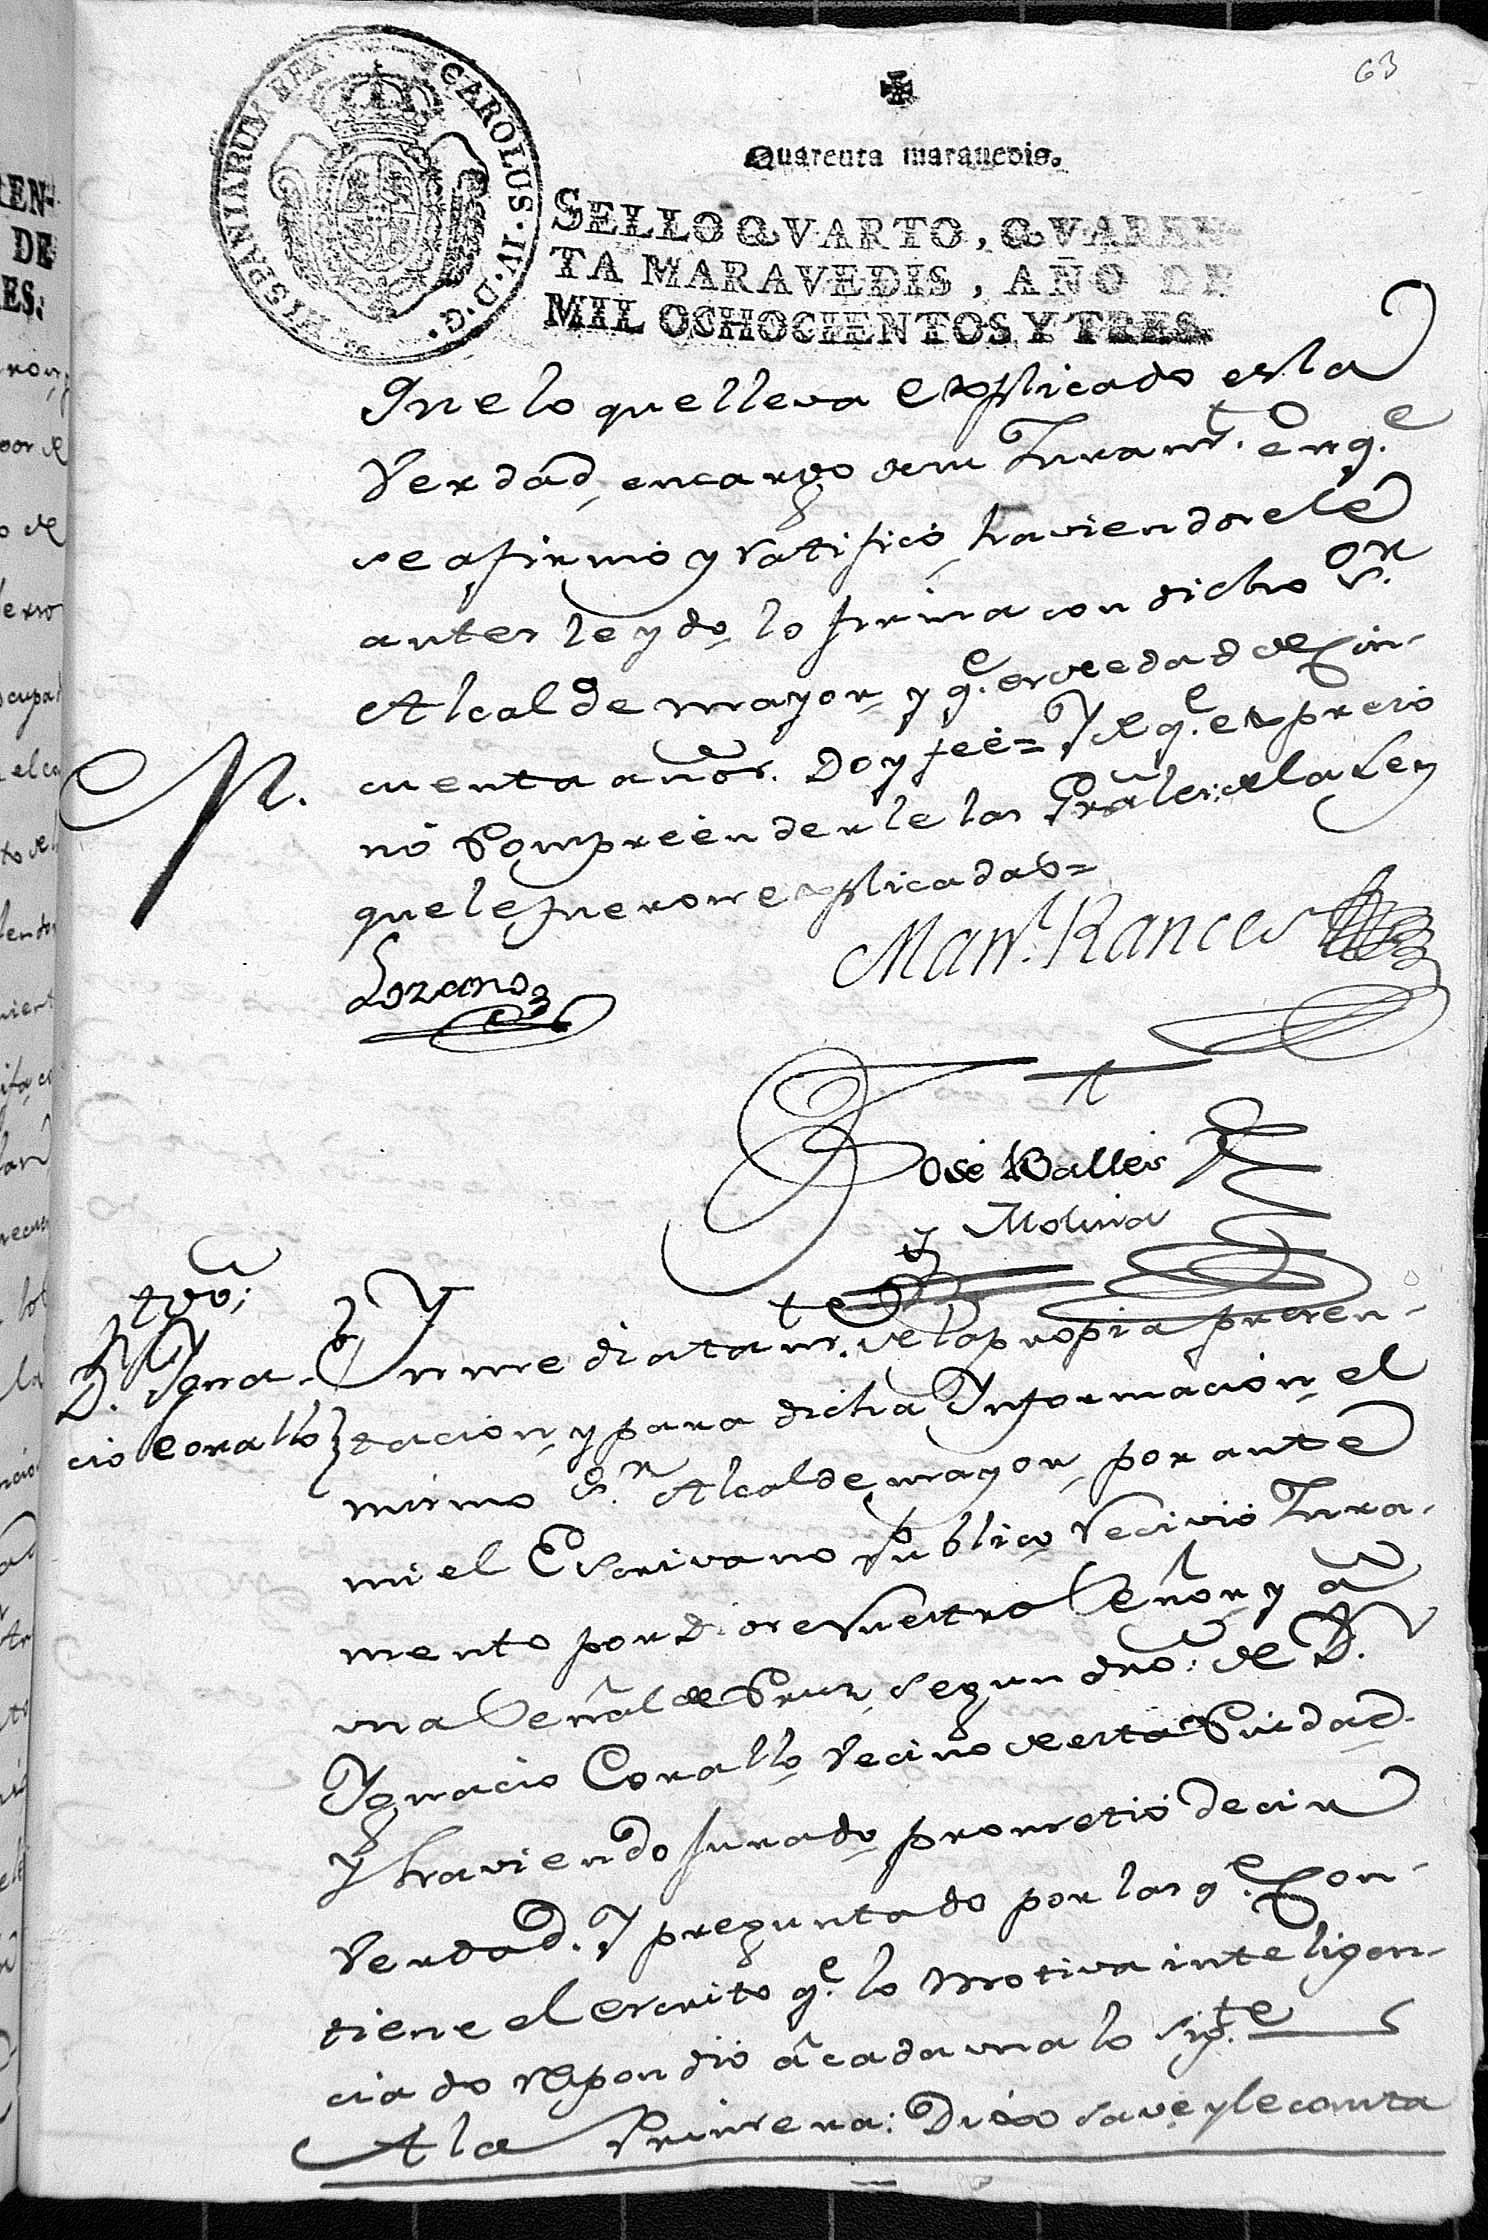 63
CAROLUS·IV·D·G· HISPANIARUM REX
Quarenta maravedis.
SELLO QVARTO, QVAREN-
TA MARAVEDIS, AÑO DE
MIL OCHOCIENTOS Y TRES.
Que lo que lleva explicado es la
Verdad, encargo de su Juramto. en q.e
se afirmó y ratificó, haviendosele
antes leydo, lo firma con dicho S.or
Alcalde mayor, y q.e es de edad de Cin-
cuenta años. Doy feé = Y de q.e expreso
nó Compreenderle las Grales. de la Ley
que le fueron explicadas =
Lozano
Man.l Rances
José Balles
y Molina
tgo:
D.n Igna-
cio Corallo
Ynmediatam.te de la propia presen-
tacion, y para dicha Informacion, el
mismo S.or Alcalde mayor, por ante
mi el Escrivano Publico, recivió Jura-
mento por Dios Nuestro Señor, y á
una Señal de Cruz, segun dro: de D.n
Ygnacio Corallo, Vecino de esta Ciudad.
Y haviendo Jurado, prometió decir
Verdad. Y preguntado por las q.e Con-
tiene el escrito q.e lo motiva inteligen-
ciado respondió á cada una lo sig.te
A la Primera: Dixo save y le consta